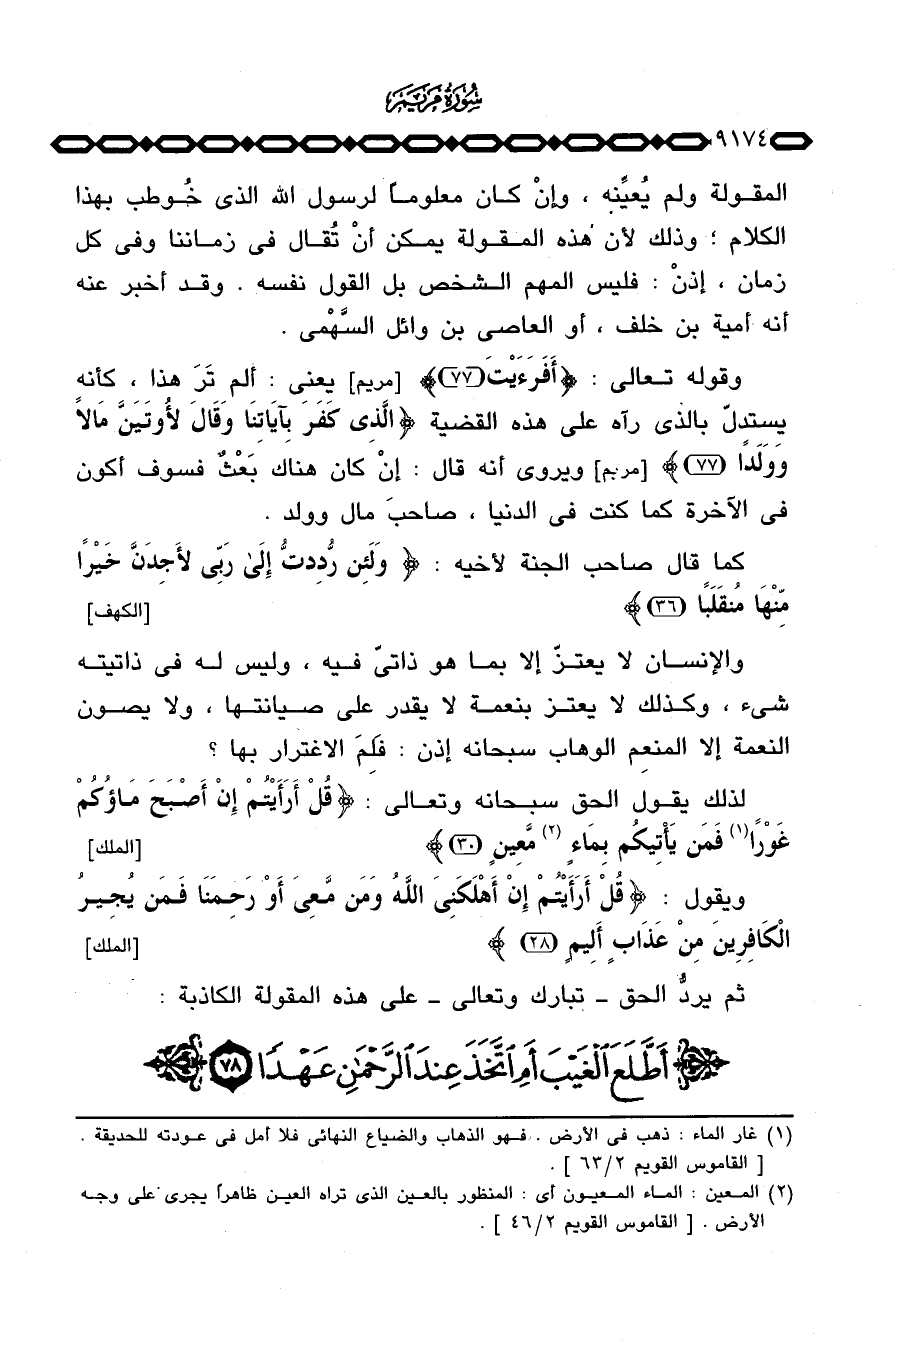 سُورَةُ مَرْيَم
٩١٧٤
المقـولة ولم يُعيِّنه ، وإنْ كـان معلومـاً لرسول الله الذى خُـوطب بـهذا
الكلام ؛ وذلك لأن هذه المـقـولة يمـكن أنْ تُقـال فى زمـاننا وفى كل
زمان ، إذنْ : فليس المهم الـشخص بل القول نفسه . وقـد أخبر عنه
أنه أمية بن خلف ، أو العاصى بن وائل السَّهْمى .
وقوله تـعالى : ﴿أَفَرَءَيْتَ (٧٧)﴾ [مريم] يعنى : ألم تَرَ هذا ، كأنه
يستدلّ بالذى رآه على هذه القضية ﴿الَّذِى كَفَرَ بِآيَاتِنَا وَقَالَ لأُوتَيَنَّ مَالاً
وَوَلَدًا (٧٧)﴾ [مريم] ويروى أنه قال : إنْ كان هناك بَعْثٌ فسوف أكون
فى الآخرة كما كنت فى الدنيا ، صاحبَ مال وولد .
كما قال صاحب الجنة لأخيه : ﴿ وَلَئِن رُّدِدتُّ إِلَىٰ رَبِّى لأَجِدَنَّ خَيْرًا
مِّنْهَا مُنقَلَبًا (٣٦)﴾ [الكهف]
والإنسـان لا يعتـزّ إلا بمـا هو ذاتىّ فـيه ، وليس لـه فى ذاتيتـه
شىء ، وكـذلك لا يعتـز بنعمـة لا يقدر على صـيانتـها ، ولا يصـون
النعمة إلا المنعم الوهاب سبحانه إذن : فَلِمَ الاغترار بها ؟
لذلك يقـول الحق سبـحانه وتـعالى : ﴿قُلْ أَرَأَيْتُمْ إِنْ أَصْبَحَ مَاؤُكُمْ
غَوْرًا(١) فَمَن يَأْتِيكُم بِمَاءٍ (٢) مَّعِينٍ (٣٠)﴾ [الملك]
ويقول : ﴿قُلْ أَرَأَيْتُمْ إِنْ أَهْلَكَنِىَ اللَّهُ وَمَن مَّعِىَ أَوْ رَحِمَنَا فَمَن يُجِيرُ
الْكَافِرِينَ مِنْ عَذَابٍ أَلِيمٍ (٢٨) ﴾ [الملك]
ثم يردُّ الحق ـ تبارك وتعالى ـ على هذه المقولة الكاذبة :
أَطَّلَعَ ٱلْغَيْبَ أَمِ ٱتَّخَذَ عِندَ ٱلرَّحْمَٰنِ عَهْدًا ٧٨
(١) غار الماء : ذهب فى الأرض . فـهو الذهاب والضياع النهائى فلا أمل فى عـودته للحديقة .
[ القاموس القويم ٦٣/٢ ] .
(٢) المـعين : المـاء المـعيـون أى : المنظور بالعين الذى تراه العيـن ظاهراً يجرى على وجـه
الأرض . [ القاموس القويم ٤٦/٢ ] .